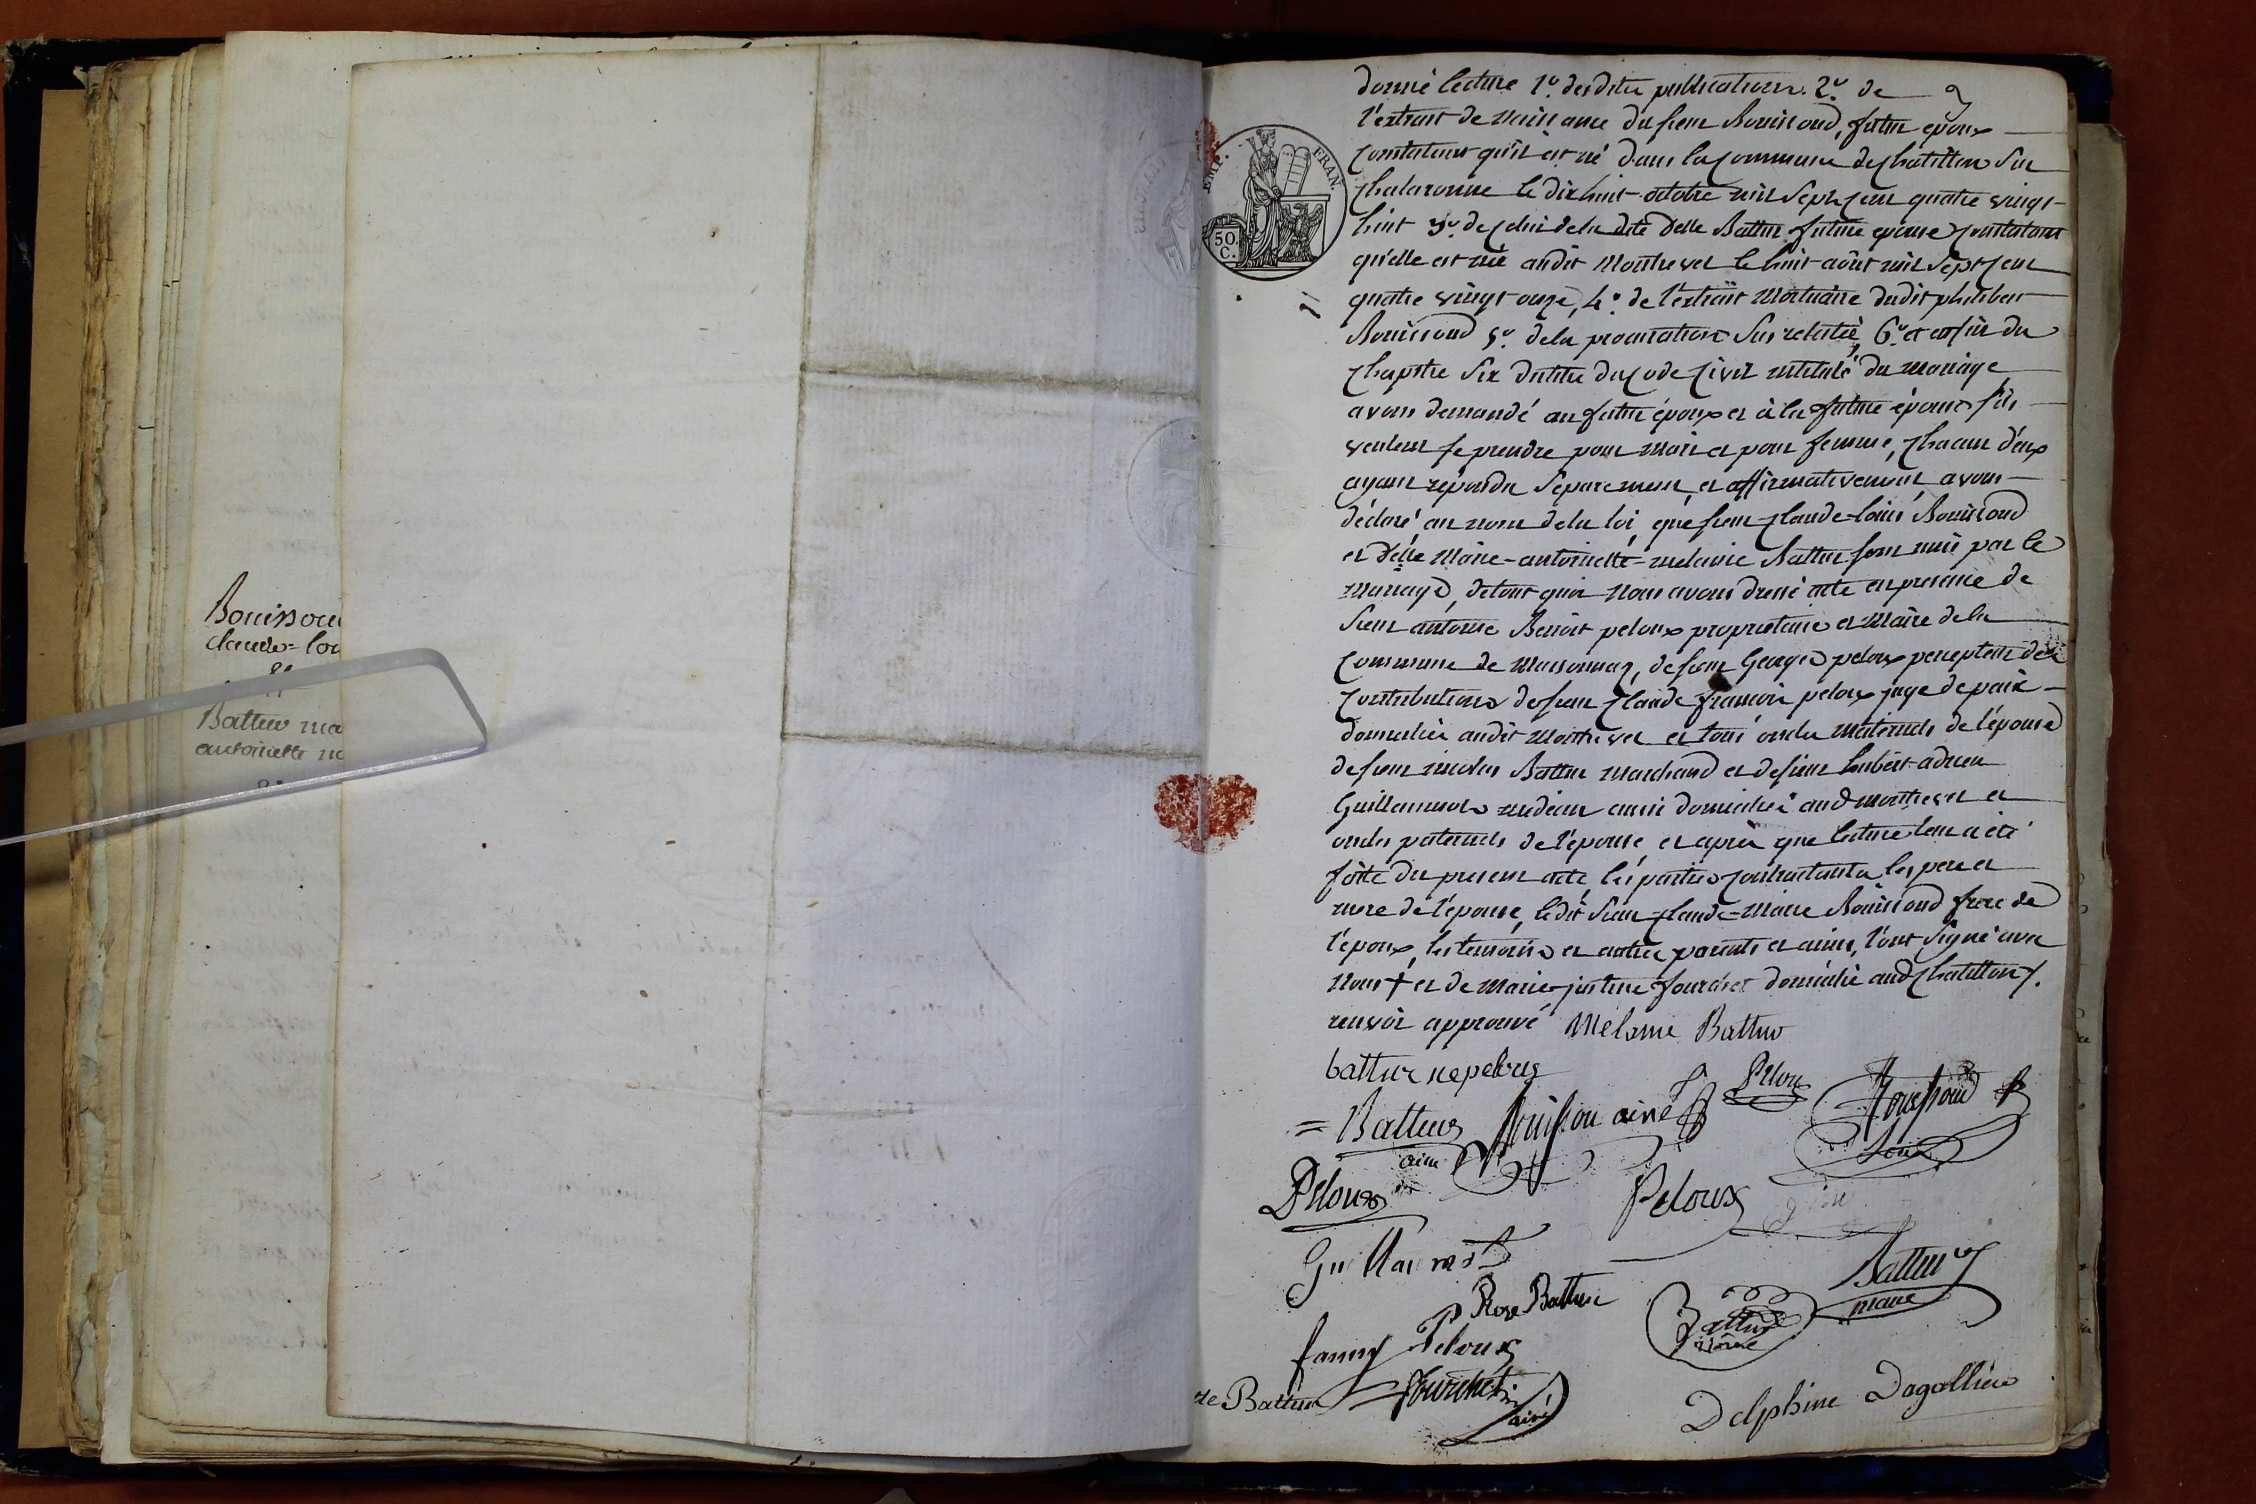 Bouissou
claude=lou
&
Battur ma
antoinette me
EMP. FRAN.
50. C.
donné lecture 1.° desdites publications. 2.° de
l'extrait de naissance du sieur Bouissoud, futur epoux
constatant qu'il est né dans la commune de chatillon sur
chalaronne le dix huit octobre mil sept cent quatre vingt
huit 3.° de celui de la dite delle Battur future epouse constatant
qu'elle est née audit Montrevel le huit août mil sept cent
quatre vingt onze, 4.° de l'extrait mortuaire dudit philibert
Bouissoud 5.° de la procuration sus relatée, 6.° et enfin du
chapitre six du titre du code civil intitulé du mariage
avons demandé au futur époux et à la future épouse s'ils
veulent se prendre pour mari et pour femme, chacun d'eux
ayant répondu séparement et affirmativement, avons
déclaré au nom de la loi, que sieur claude-louis Bouissoud
et delle Marie-antoinette-melanie Battur sont unis par le
mariage, de tout quoi nous avons dressé acte en presence de
sieur antoine Benoit peloux proprietaire et Maire de la
commune de Marsonnaz, de sieur George peloux percepteur des
contributions de sieur claude francois peloux juge de paix
domiciliés audit Montrevel et tous oncles maternels de l'épouse
de sieur nicolas Battur marchand et de sieur
Guillaumot medecin aussi domicilié aud montrevel et
oncles paternels de l'épouse et après que lecture leur a été
faite du present acte, les parties contractantes les pere et
mere de l'épouse, ledit sieur claude-Marie Bouissoud frere de
l'epoux, les temoins et autres parents et amis, l'ont signé avec
nous + et de Marie justine fourchet domicilié aud chatillon /.
renvoi approuvé Mélanie Battur
battur nepeloux
= Battur Bouissou ainé Peloux Bouissoud
ainé Louis
Peloux Peloux
Guillaumot
Rose Battur Battur
marie
fanny Peloux Battur
de Battur Fourchet
ainé
Delphine Dagallier